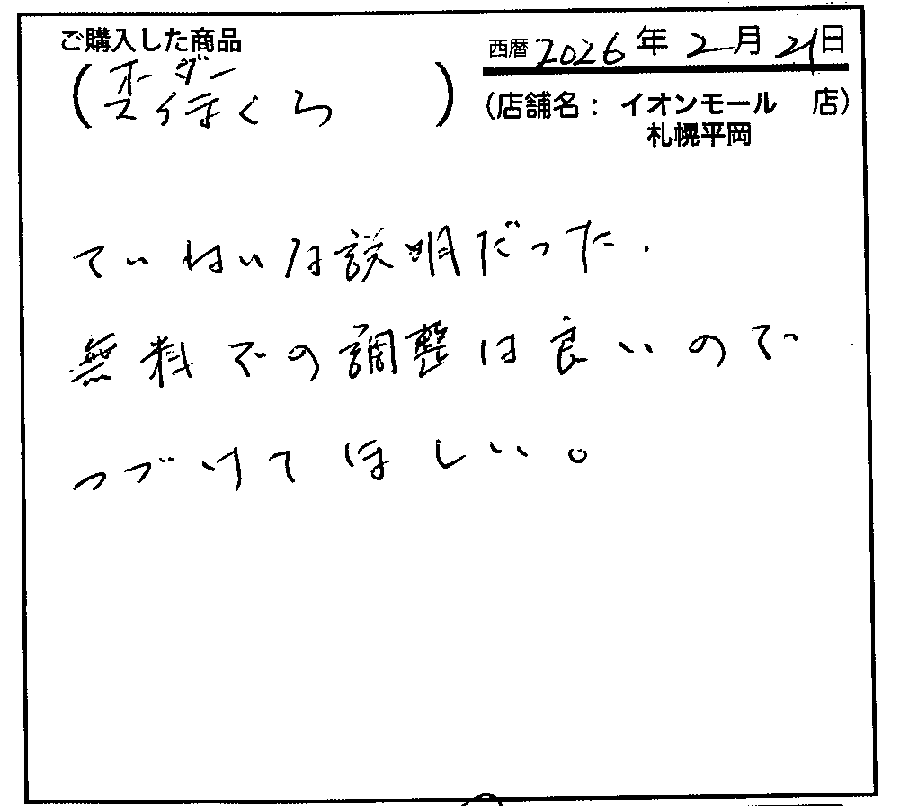 ご購入した商品
西暦 2026年2月21日
(オーダー
スイまくら)
(店舗名: イオンモール 店)
札幌平岡
ていねいな説明だった.
無料での調整は良いので
つづけてほしい。